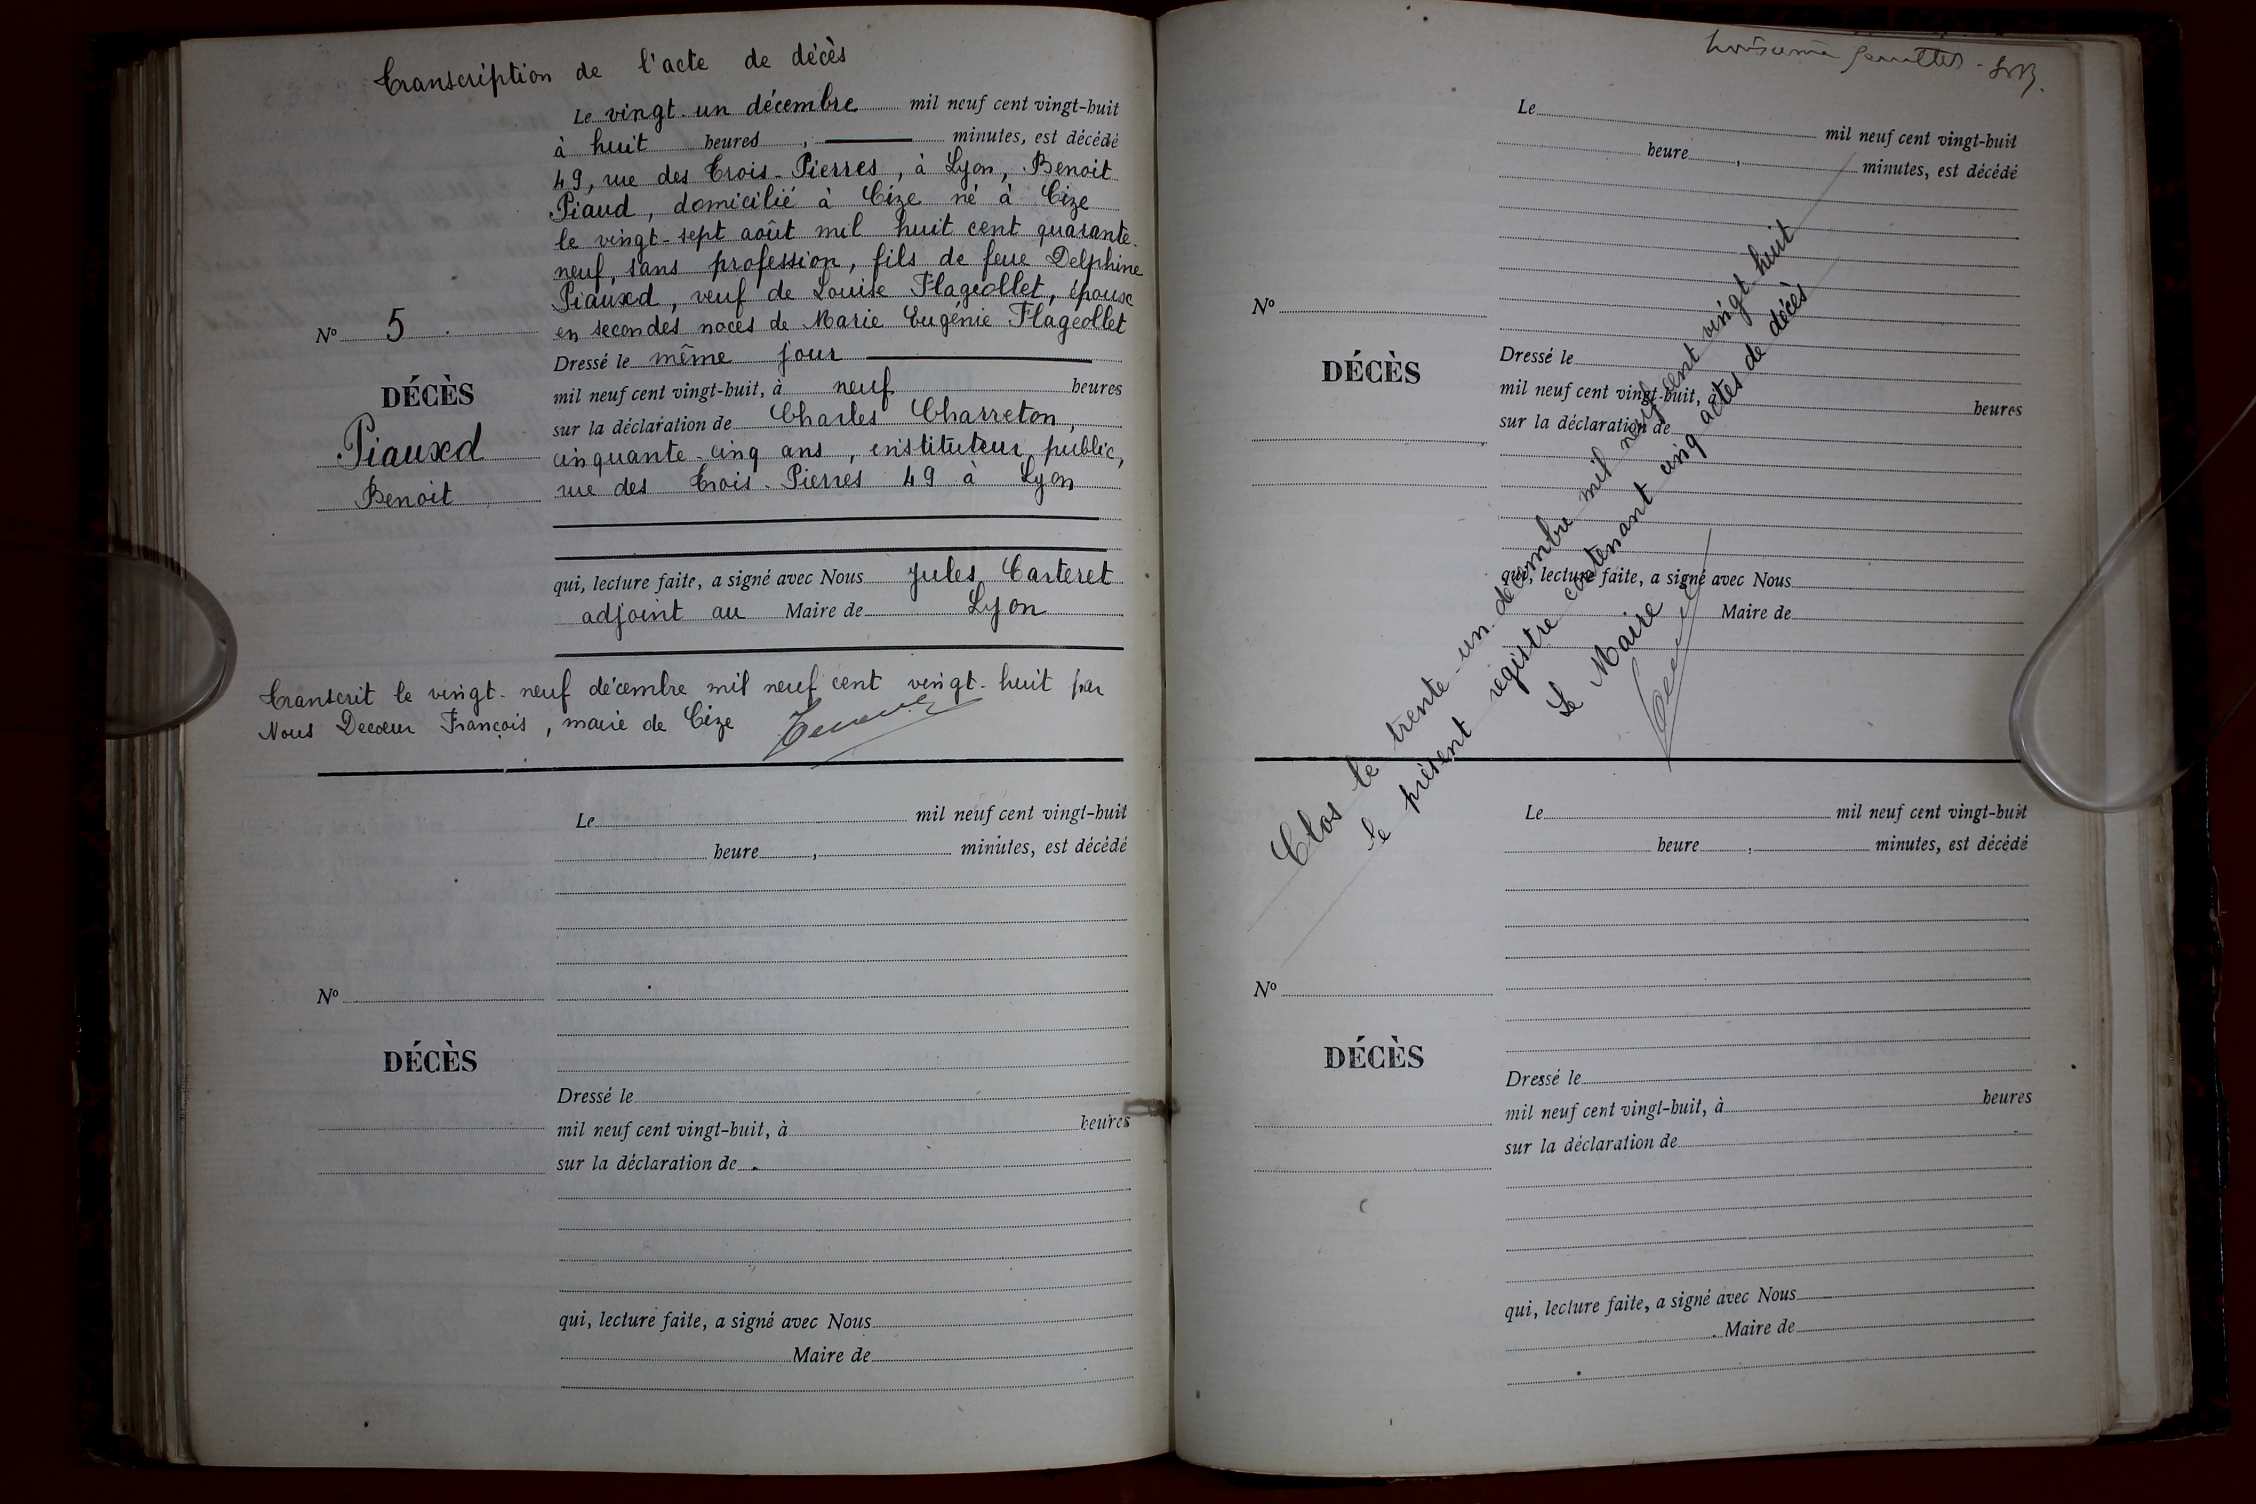 Transcription de l'acte de décès
Le vingt-un décembre mil neuf cent vingt-huit
à huit heures, minutes, est décédé
49, rue des Trois-Pierres, à Lyon, Benoit
Piaud, domicilié à Cize né à Cize
le vingt-sept août mil huit cent quarante-
neuf, sans profession, fils de feue Delphine
Piauxd, veuf de Louise Flageollet, épouse
en secondes noces de Marie Eugénie Flageollet
Nº 5
DÉCÈS
Piauxd
Benoit
Dressé le même jour
mil neuf cent vingt-huit, à neuf heures
sur la déclaration de Charles Charreton,
cinquante-cinq ans, instituteur public,
rue des Trois-Pierres 49 à Lyon
qui, lecture faite, a signé avec Nous Jules Carteret
adjoint au Maire de Lyon
Transcrit le vingt-neuf décembre mil neuf cent vingt-huit par
Nous Decoeur François, maire de Cize
Le mil neuf cent vingt-huit
heure, minutes, est décédé
Nº
DÉCÈS
Dressé le
mil neuf cent vingt-huit, à heures
sur la déclaration de
qui, lecture faite, a signé avec Nous
Maire de
Le mil neuf cent vingt-huit
heure, minutes, est décédé
Nº
DÉCÈS
Dressé le
mil neuf cent vingt-huit, à heures
sur la déclaration de
qui, lecture faite, a signé avec Nous
Maire de
Clos le trente-un décembre mil neuf cent vingt huit
le présent registre contenant cinq actes de décès
Le Maire
Le mil neuf cent vingt-huit
heure, minutes, est décédé
Nº
DÉCÈS
Dressé le
mil neuf cent vingt-huit, à heures
sur la déclaration de
qui, lecture faite, a signé avec Nous
Maire de